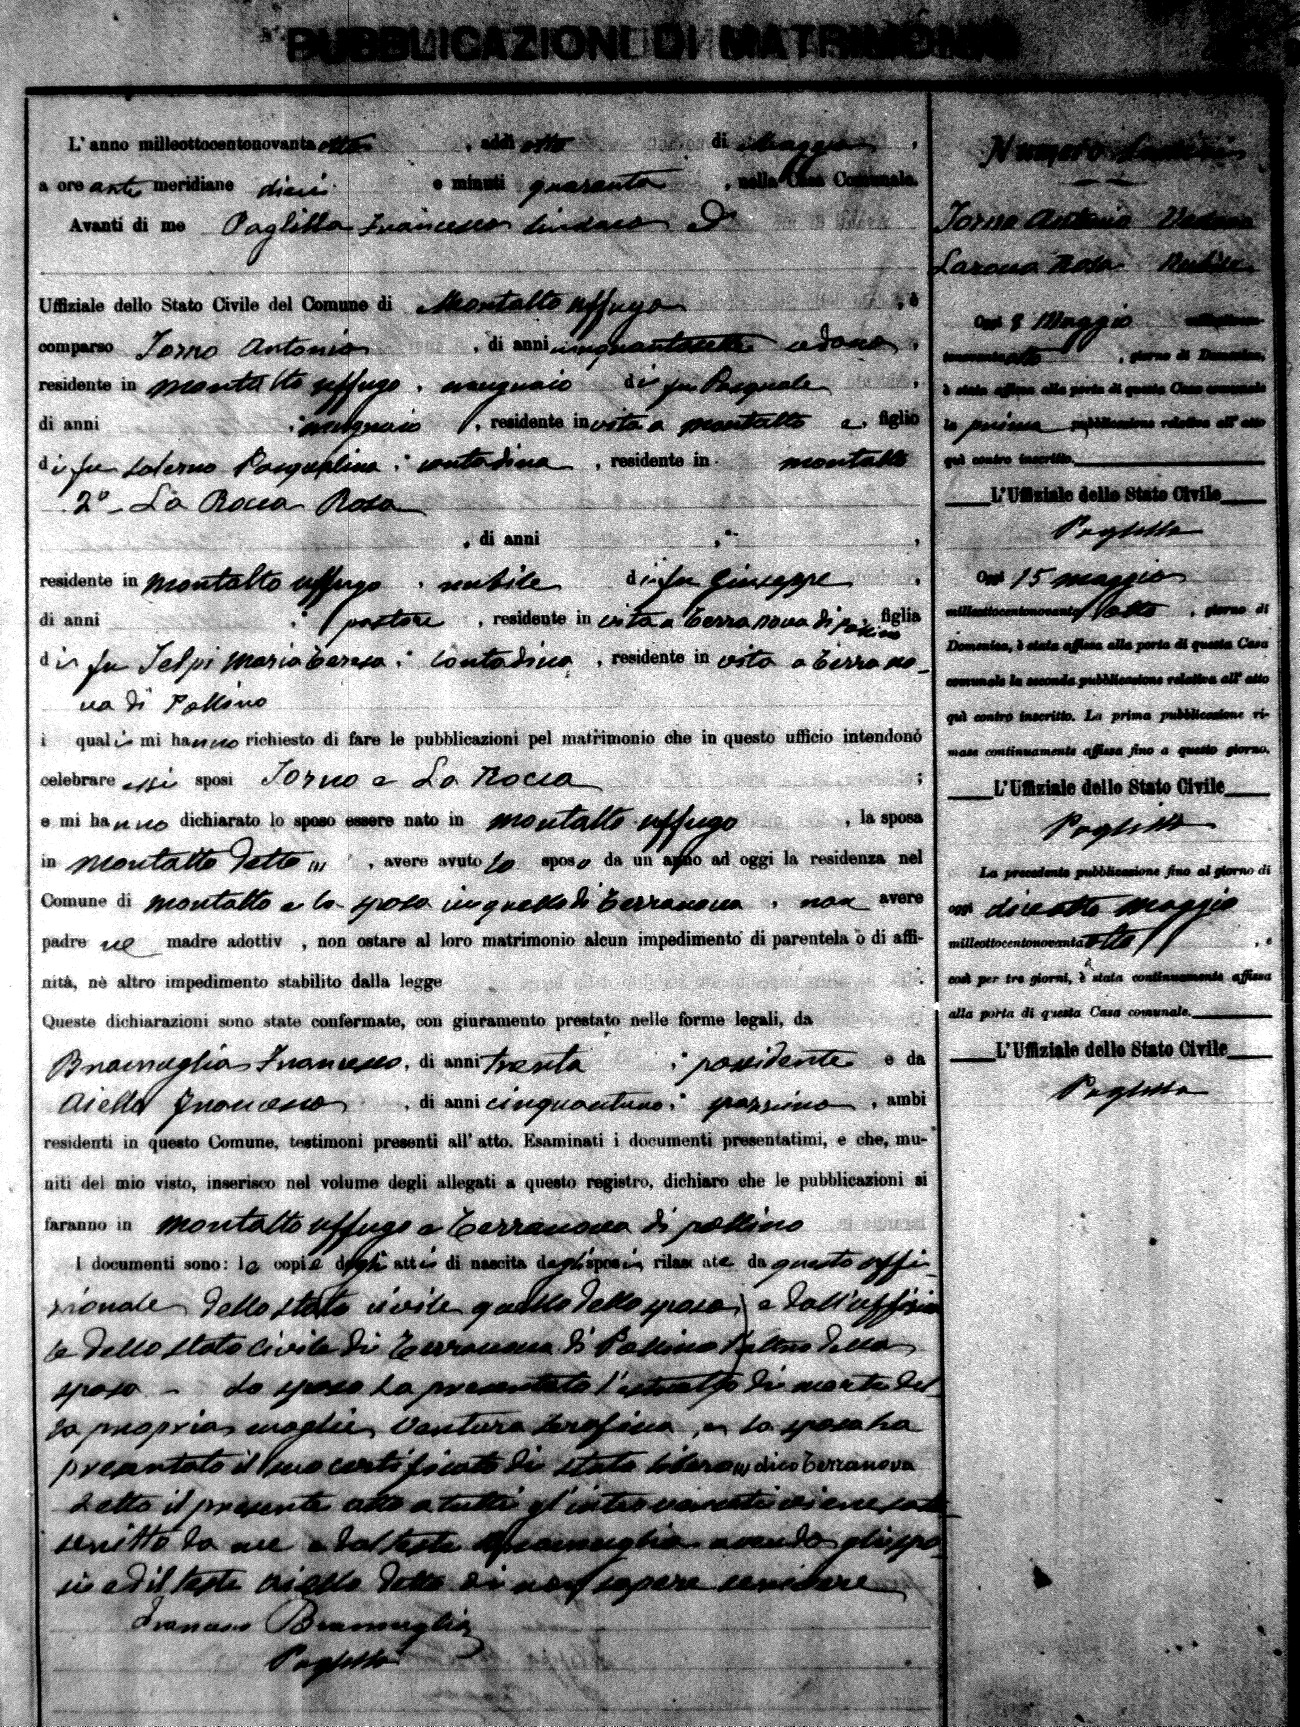 PUBBLICAZIONI DI MATRIMONIO
L'anno milleottocentonovantaotto, addì otto di Maggio,
a ore anti meridiane dieci e minuti quaranta, nella Casa Comunale.
Avanti di me Paglilla Francesco Sindaco ed
Uffiziale dello Stato Civile del Comune di Montalto Uffugo, è
comparso Iorno Antonio, di anni cinquantasette vedovo,
residente in Montalto Uffugo, mugnaio di fu Pasquale,
di anni ; mugnaio, residente in vita a Montalto e, figlio
di fu Salerno Pasqualina; contadina, residente in montalto
2° La Rocca Rosa
, di anni ,
residente in Montalto Uffugo, nubile di fu Giuseppe,
di anni ; pastore, residente in vita a Terranova di Pollino figlia
di fu Maria Teresa; contadina, residente in vita a Terrano-
va di Pollino
i quali mi hanno richiesto di fare le pubblicazioni pel matrimonio che in questo ufficio intendono
celebrare essi sposi Iorno e La Rocca ;
e mi hanno dichiarato lo sposo essere nato in montalto uffugo, la sposa
in montalto detto, avere avuto lo sposo da un anno ad oggi la residenza nel
Comune di montalto e la sposa in quello di Terranova, non avere
padre ne madre adottiv , non ostare al loro matrimonio alcun impedimento di parentela o di affi-
nità, nè altro impedimento stabilito dalla legge
Queste dichiarazioni sono state confermate, con giuramento prestato nelle forme legali, da
Bramuglia Francesco, di anni trenta ; possidente e da
Aiello Francesco, di anni cinquantuno; spazzino, ambi
residenti in questo Comune, testimoni presenti all'atto. Esaminati i documenti presentatimi, e che, mu-
niti del mio visto, inserisco nel volume degli allegati a questo registro, dichiaro che le pubblicazioni si
faranno in montalto uffugo e Terranova di pollino
I documenti sono: le copie degli atti di nascita degli sposi rilasciate da questo uffi-
dello stato civile quello dello sposo, e dall'uffizia
le dello stato civile di Terranova di Pollino l'altro della
sposa - Lo sposo ha presentato l'estratto di morte del-
la propria moglie Ventura Serafina, e la sposa ha
presentato il suo certificato di stato libero dico Terranova
Letto il presente atto a tutti gl'intervenuti viene sotto
scritto da me e dal teste Bramuglia avendo gli spo-
si ed il teste Aiello detto di non sapere scrivere
Francesco Bramuglia
Paglilla
Numero
Iorno Antonio Vedovo
Larocca Rosa Nubile
Oggi 8 Maggio milleottocento-
novantaotto, giorno di Domenica,
è stata affissa alla porta di questa Casa comunale
la prima pubblicazione relativa all'atto
quì contro inscritto.
L'Uffiziale dello Stato Civile
Paglilla
Oggi 15 maggio
milleottocentonovantaotto, giorno di
Domenica, è stata affissa alla porta di questa Casa
comunale la seconda pubblicazione relativa all'atto
quì contro inscritto. La prima pubblicazione ri-
mase continuamente affissa fino a questo giorno.
L'Uffiziale dello Stato Civile
Paglilla
La precedente pubblicazione fino al giorno di
oggi diciotto maggio
milleottocentonovantaotto, e
così per tre giorni, è stata continuamente affissa
alla porta di questa Casa comunale.
L'Uffiziale dello Stato Civile
Paglilla